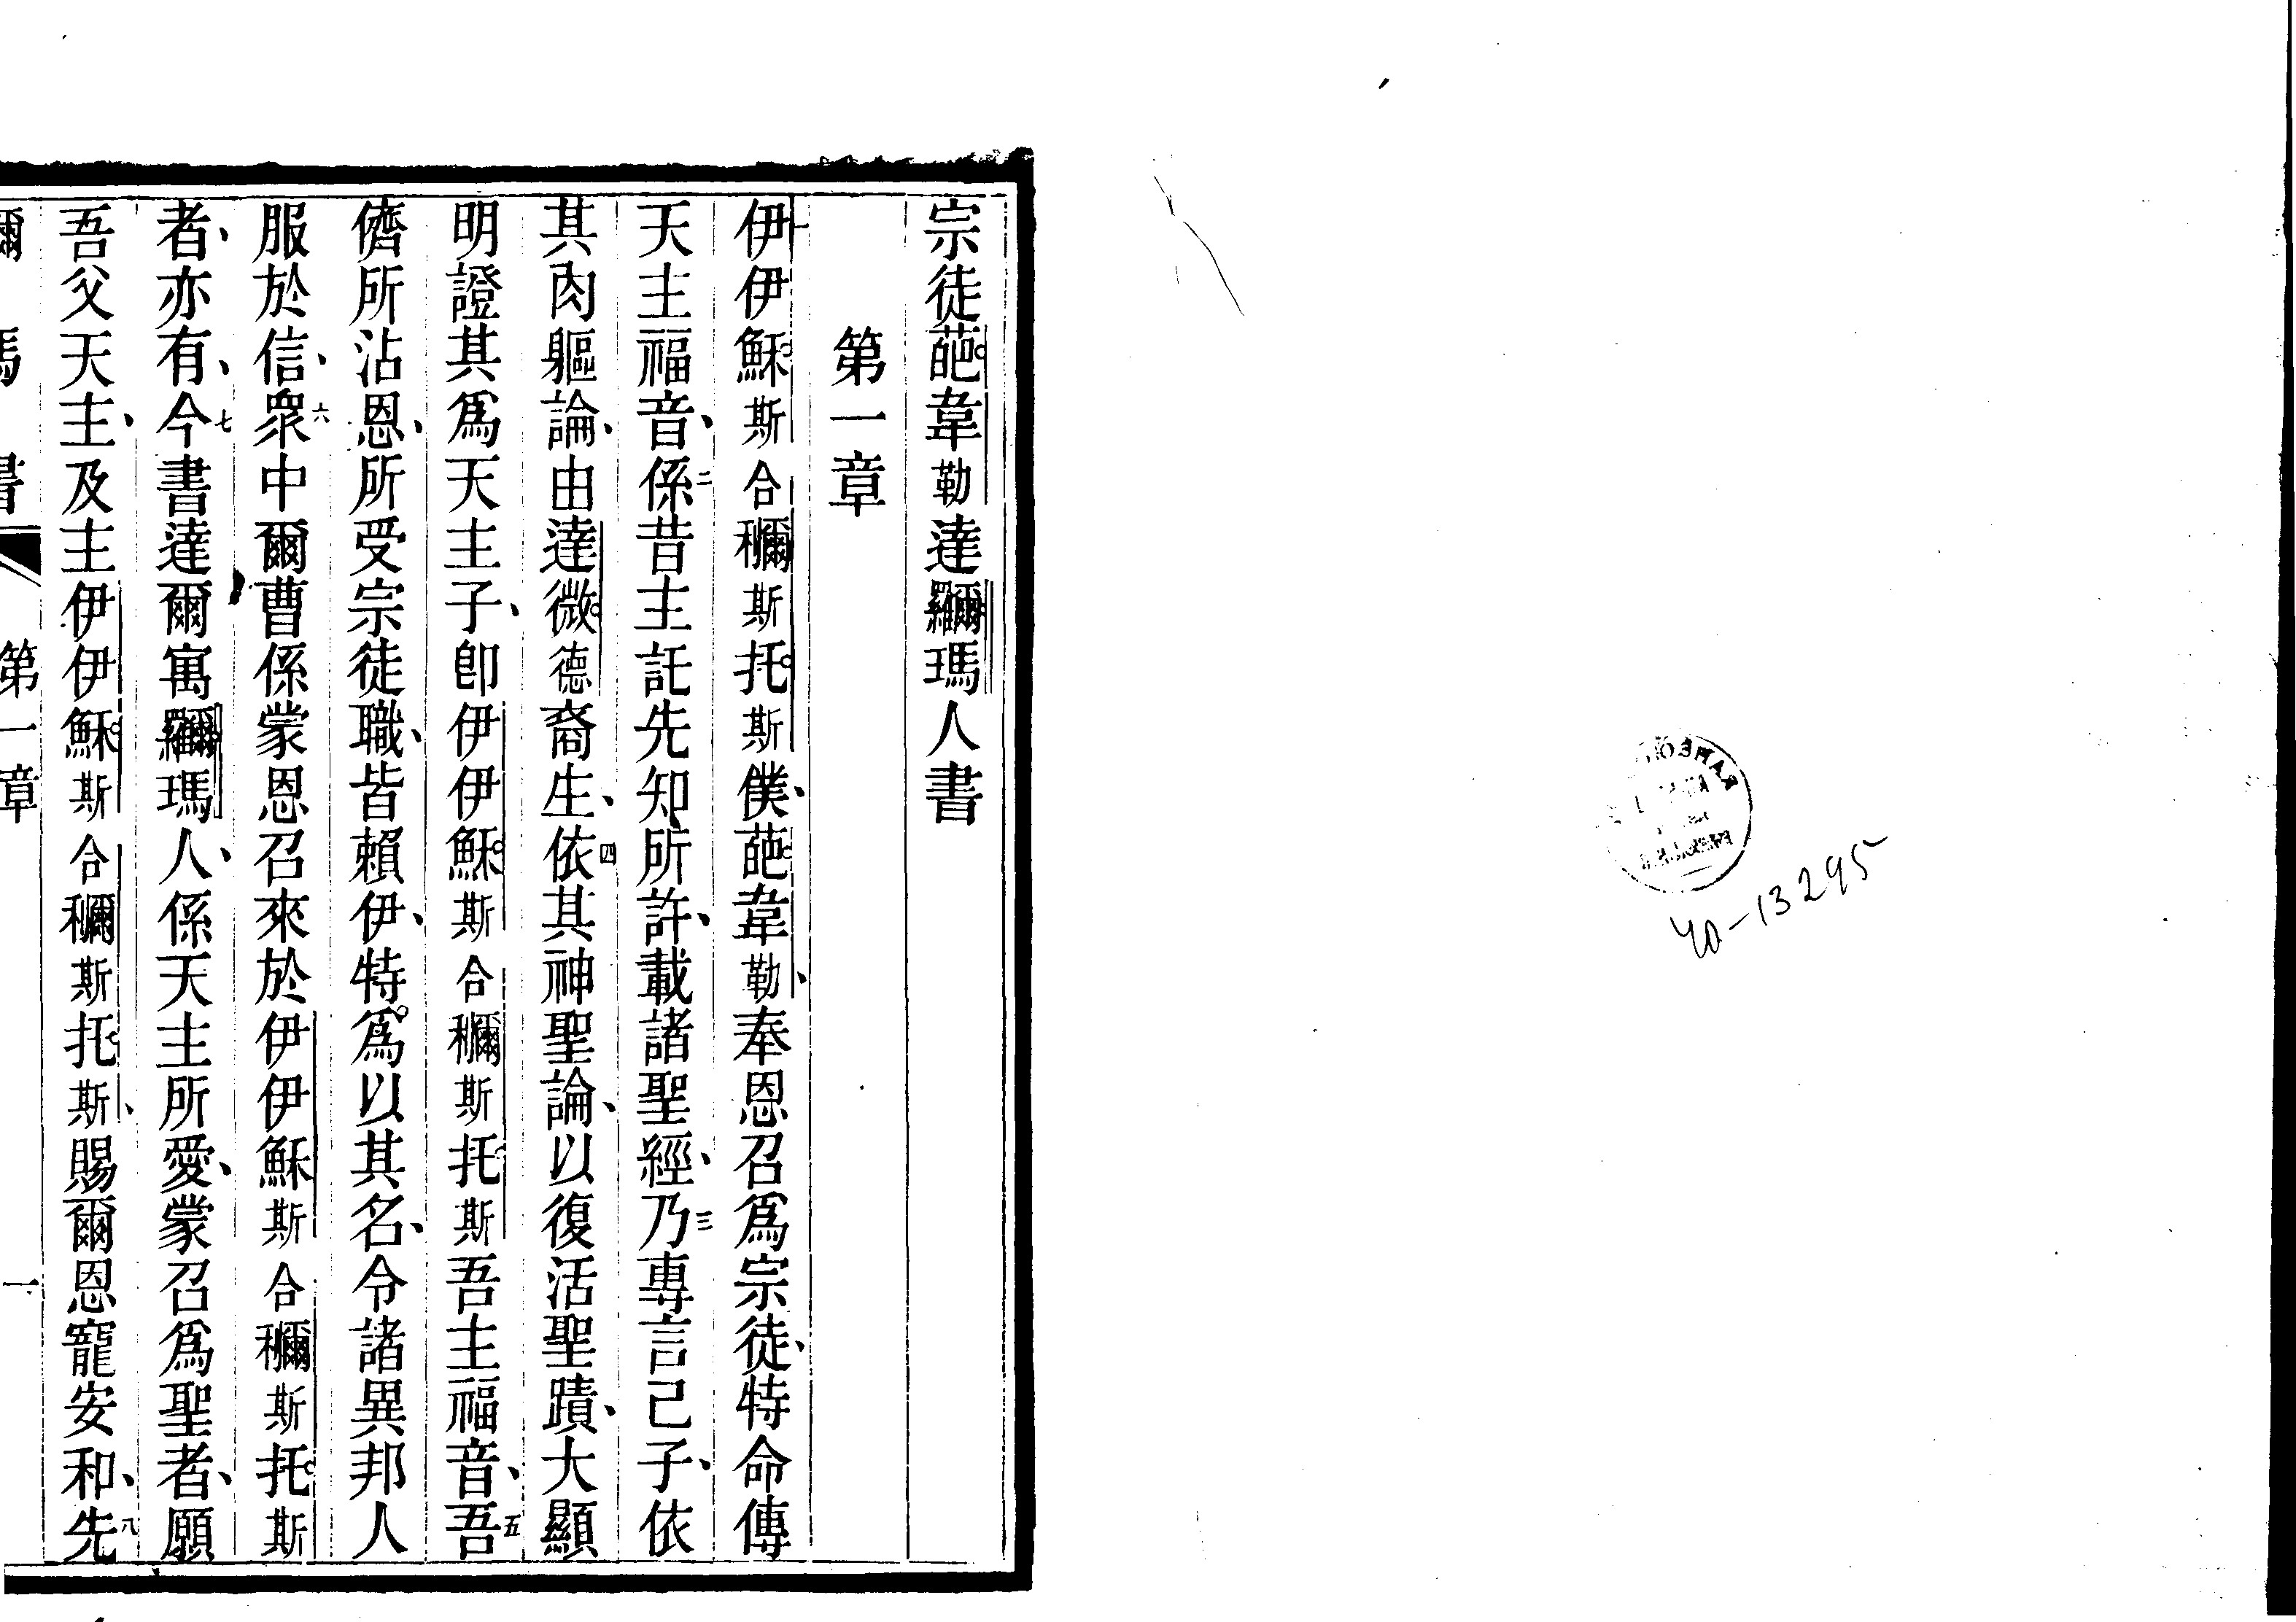 宗徒葩韋勒達⿰羅爾瑪人書
第一章
一伊伊穌斯合穪斯托斯僕、葩韋勒、奉恩召爲宗徒、特命傳
天主福音、二係昔主託先知所許、載諸聖經、三乃專言己子、依
其肉軀論、由達微德裔生、四依其神聖論、以復活聖蹟、大顯
明證其爲天主子、卽伊伊穌斯合穪斯托斯吾主福音、五吾
儕所沾恩、所受宗徒職、皆賴伊、特爲以其名、令諸異邦人
服於信、六衆中爾曹係蒙恩召來於伊伊穌斯合穪斯托斯
者、亦有、七今書達爾寓⿰羅爾瑪人、係天主所愛、蒙召爲聖者、願
吾父天主、及主伊伊穌斯合穪斯托斯、賜爾恩寵安和、八先
第一章 一
40-13295